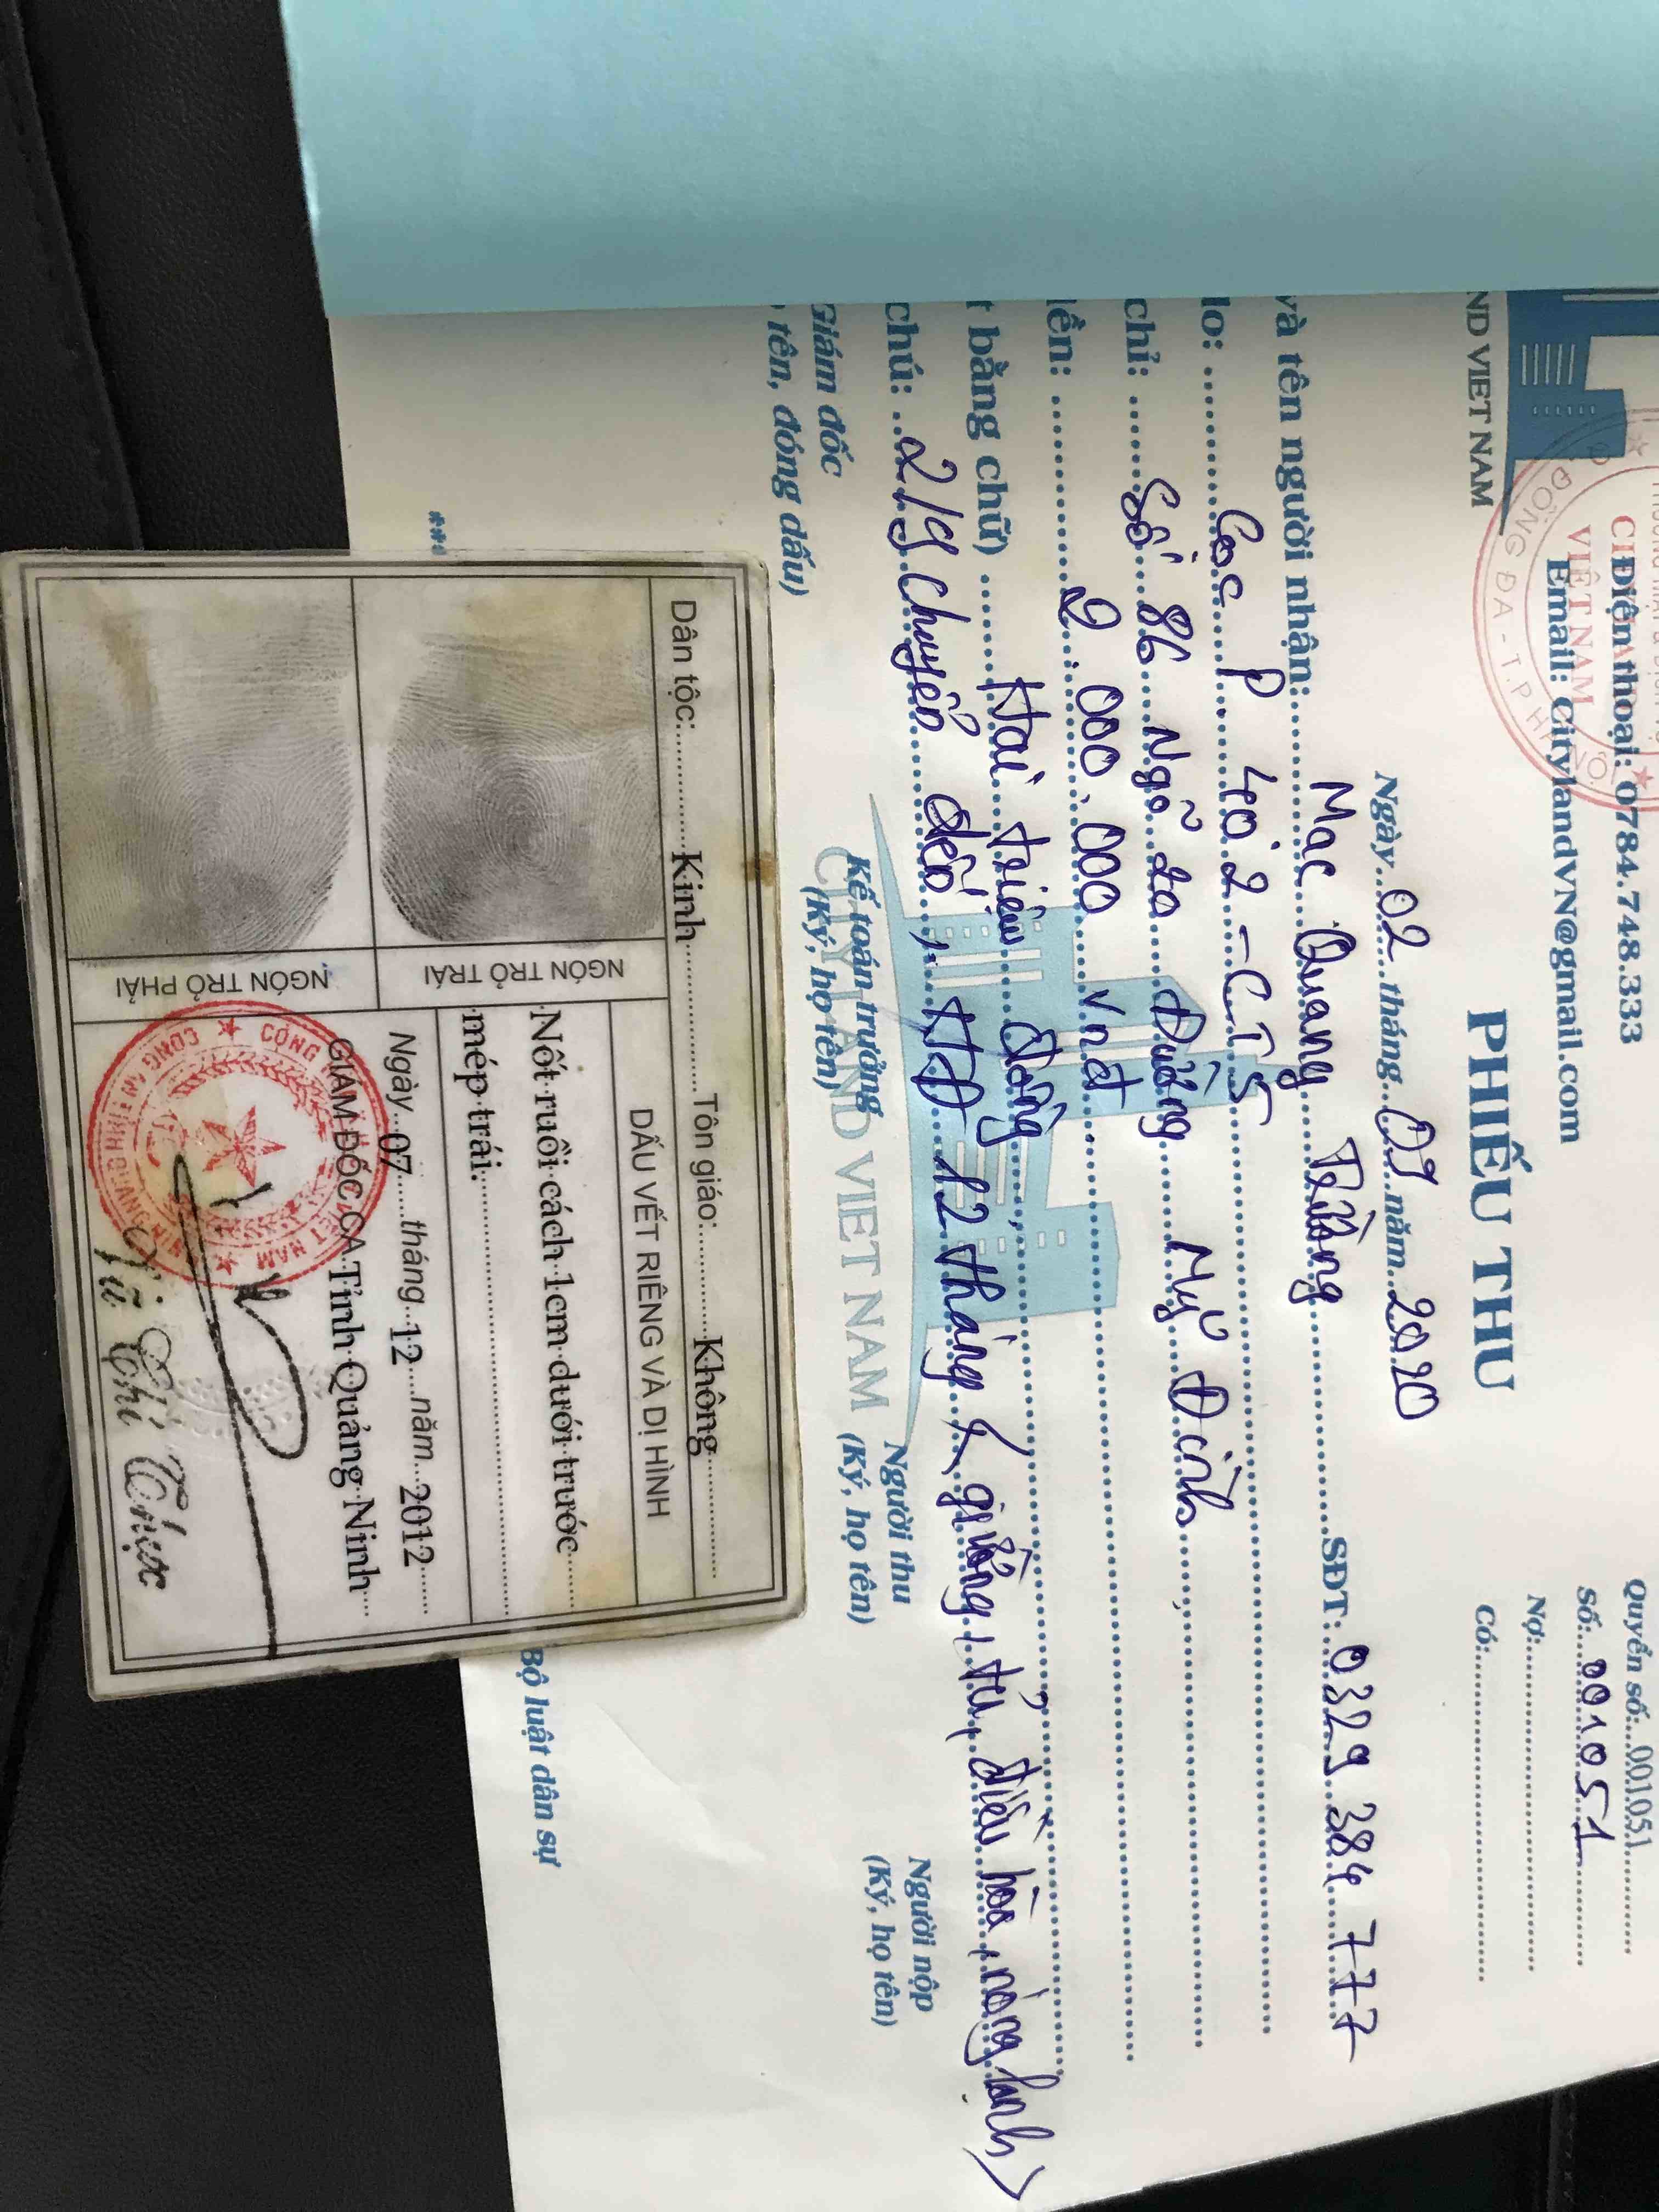 ND VIET NAM
CI
VIỆT NAM
ĐỐNG ĐA - T.P HÀ NỘI
Điện thoại: 0784.748.333
Email: CitylandVN@gmail.com
Quyển số:...001051
Số:...001051
Nợ:
Có:
PHIẾU THU
Ngày...02...tháng...năm...2020
và tên người nhận:...Mạc Quang Trường...SĐT:...0329 384 777
do:...Cọc P 402 - CT5
chỉ:...Số 86 Ngõ 20 Đường Mỹ Đình
iền:...2.000.000 vnđ
t bằng chữ)...Hai triệu đồng
chú:...2/9 chuyển đến, HĐ 12 tháng (giường, tủ, điều hòa, nóng lạnh)
Giám đốc
tên, đóng dấu)
Kế toán trưởng
(Ký, họ tên)
Người thu
(Ký, họ tên)
Người nộp
(Ký, họ tên)
CITY LAND VIET NAM
***
Bộ luật dân sự
Dân tộc:...Kinh...Tôn giáo:...Không
NGÓN TRỎ TRÁI
NGÓN TRỎ PHẢI
DẤU VẾT RIÊNG VÀ DỊ HÌNH
Nốt ruồi cách 1cm dưới trước
mép trái.
Ngày...07...tháng...12...năm...2012
GIÁM ĐỐC CA Tỉnh Quảng Ninh
Vũ Chí Thực